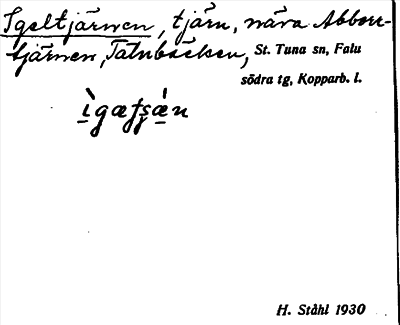 Igeltjärnen, tjärn, nära Abborr-
tjärnen, Tätnbäcken, St. Tuna sn, Falu
södra tg, Kopparb. l.
H. Ståhl 1930